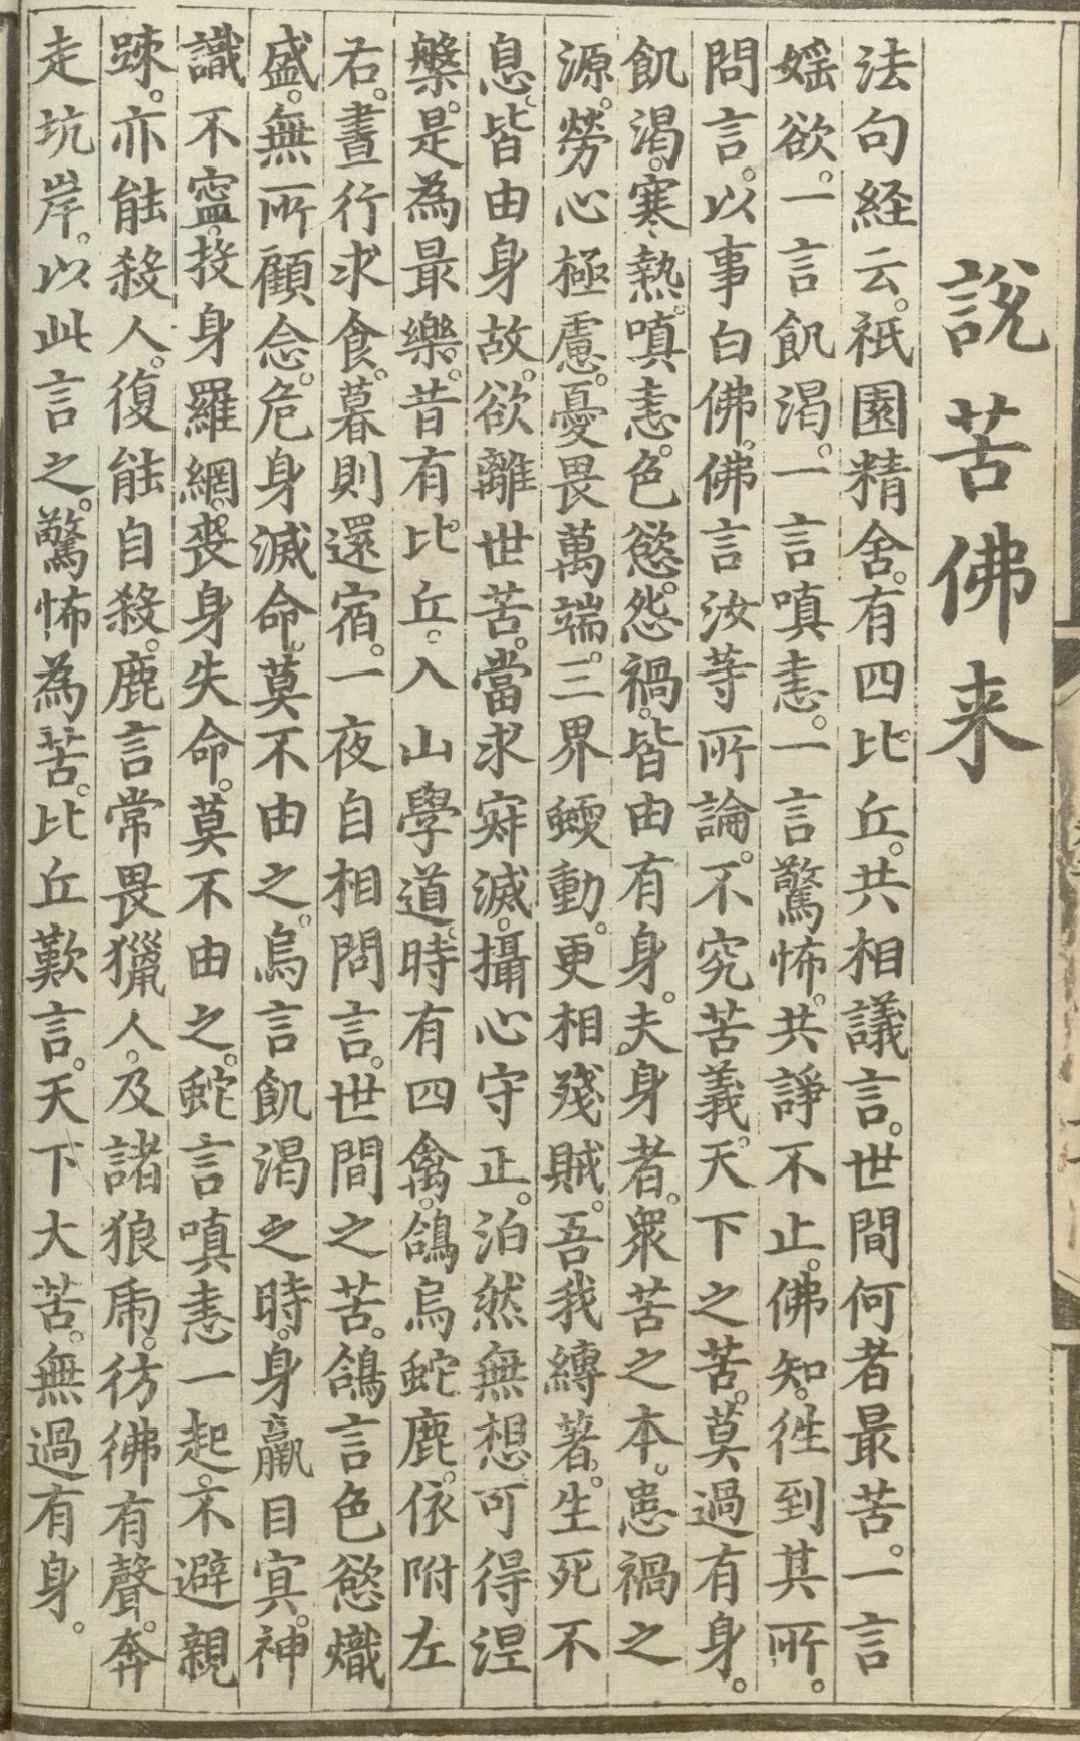 說苦佛来
法句経云。祇園精舍。有四比丘。共相議言。世間何者最苦。一言
婬欲。一言飢渴。一言嗔恚。一言驚怖。共諍不止。佛知。徃到其所。
問言。以事白佛。佛言汝等所論。不究苦義。天下之苦。莫過有身。
飢渴。寒熱。嗔恚。色慾。怨禍。皆由有身。夫身者。眾苦之本。患禍之
源。勞心極慮。憂畏萬端。三界蝡動。更相殘賊。吾我縛著。生死不
息。皆由身故。欲離世苦。當求寂滅。攝心守正。泊然無想。可得涅
槃。是為最樂。昔有比丘。入山學道。時有四禽。鴿烏蛇鹿。依附左
右。晝行求食。暮則還宿。一夜自相問言。世間之苦。鴿言色慾熾
盛。無所顧念。危身滅命。莫不由之。烏言飢渴之時。身羸目㝠。神
識不寧。投身羅網。喪身失命。莫不由之。蛇言嗔恚一起。不避親
踈。亦能殺人。復能自殺。鹿言常畏獵人。及諸狼虎。彷彿有聲。奔
走坑岸。以此言之。驚怖為苦。比丘歎言。天下大苦。無過有身。